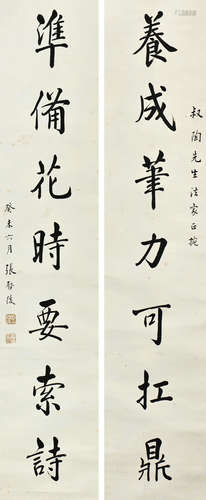 養成筆力可扛鼎
叔陶先生法家正捥
準備花時要索詩
癸未六月張啓後